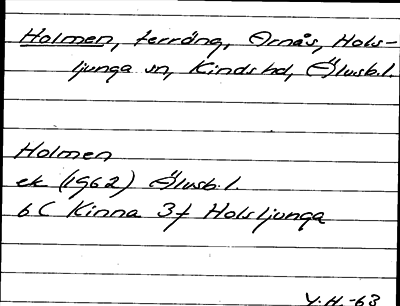 Holmen, terräng, Ornås, Hols-
ljunga sn, Kinds hd, Älvsb.l.
Holmen
ek (1962) Älvsb.l.
6C Kinna 3f Holsljunga
Y.H.-63